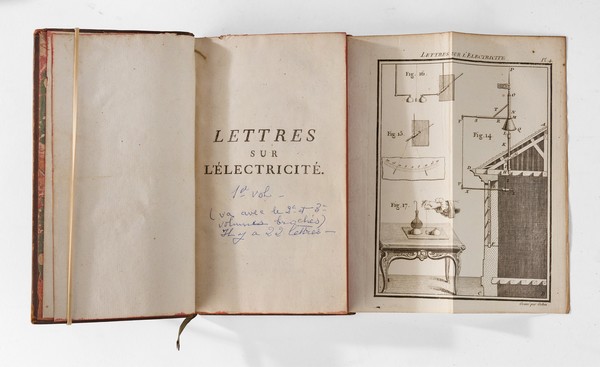 LETTRES
SUR
L'ÉLECTRICITÉ.
1er vol -
(va avec le 2e et 3e
volumes brochés)
Il y a 22 lettres -
LETTRES SUR L'ELECTRICITE.
Pl. 4
Fig. 16
Fig. 15
Fig. 14
Fig. 17